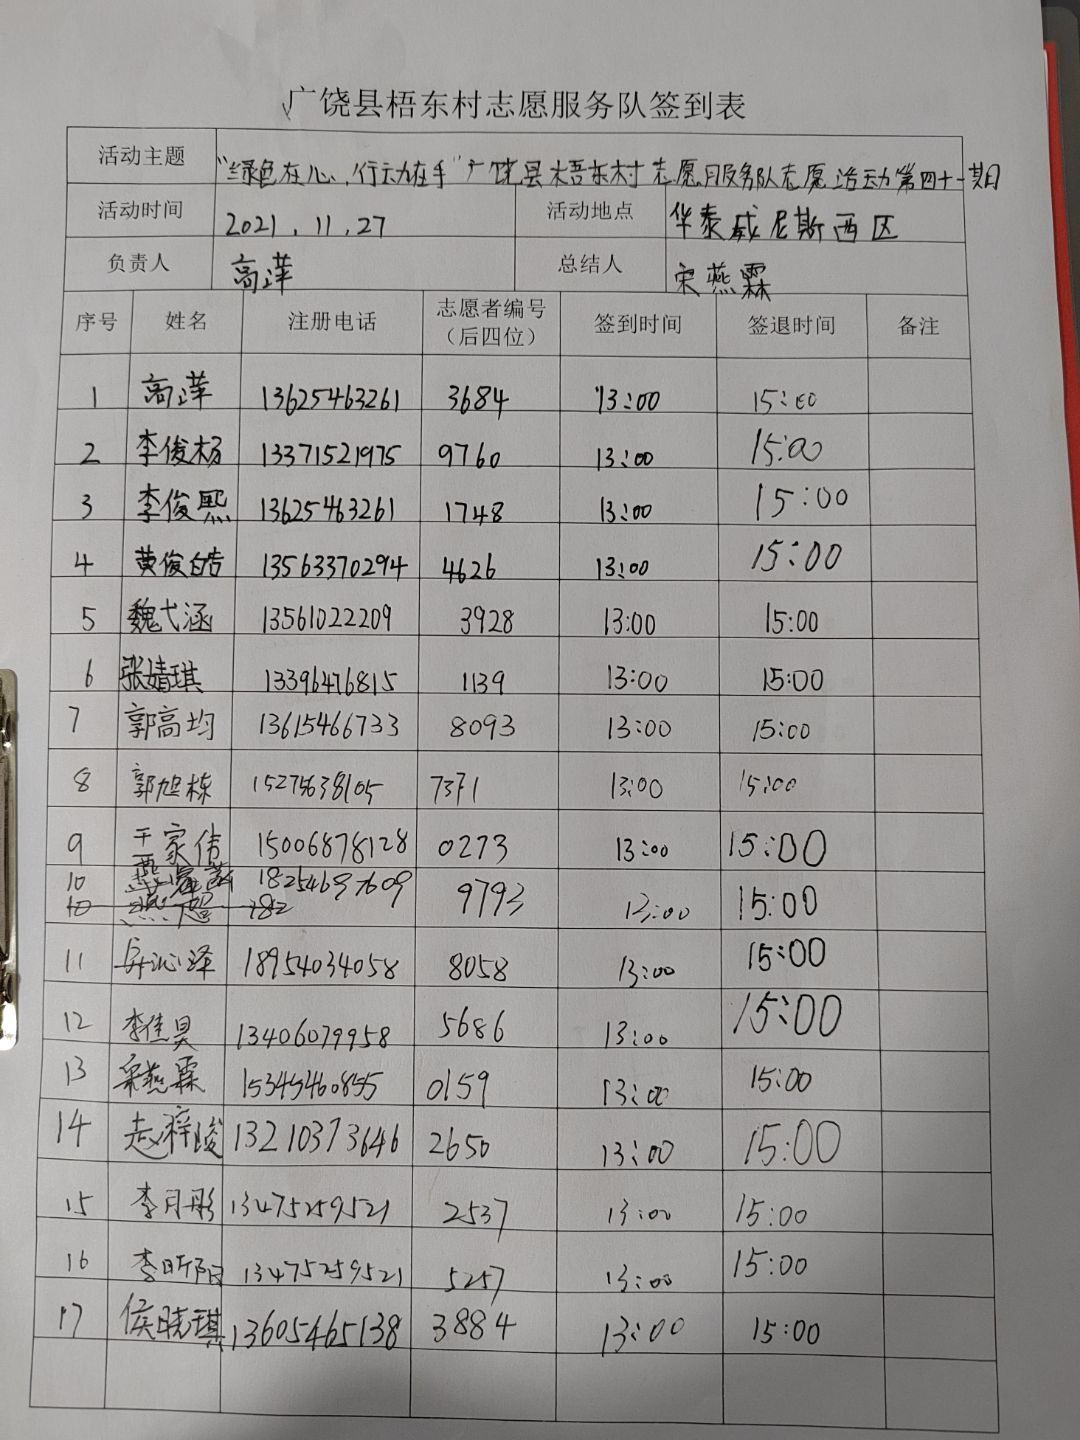 广饶县梧东村志愿服务队签到表
活动主题 “绿色在心，行动在手”广饶县梧东村志愿服务队志愿活动第四十一期
活动时间 2021.11.27 活动地点 华泰威尼斯西区
负责人 高萍 总结人 宋燕霖
序号 姓名 注册电话 志愿者编号（后四位） 签到时间 签退时间 备注
1 13625463261 3684 13:00 15:00
2 李俊杨 13371521975 9760 13:00 15:00
3 李俊熙 13625463261 1748 13:00 15:00
4 黄俊皓 13563370294 4626 13:00 15:00
5 魏弋涵 13561022209 3928 13:00 15:00
6 张婧琪 13396476815 1139 13:00 15:00
7 郭高均 13615466733 8093 13:00 15:00
8 郭旭栋 15275638105 7371 13:00 15:00
9 王家伟 15006878128 0273 13:00 15:00
10 18254697609 9793 13:00 15:00
11 18954034058 8058 13:00 15:00
12 李佳昊 13406079958 5686 13:00 15:00
13 宋燕霖 15345460855 0159 13:00 15:00
14 赵梓峻 13210373646 2650 13:00 15:00
15 李月彤 13475259521 2537 13:00 15:00
16 李昕阳 13475259521 5257 13:00 15:00
17 侯晓琪 13605465138 3884 13:00 15:00